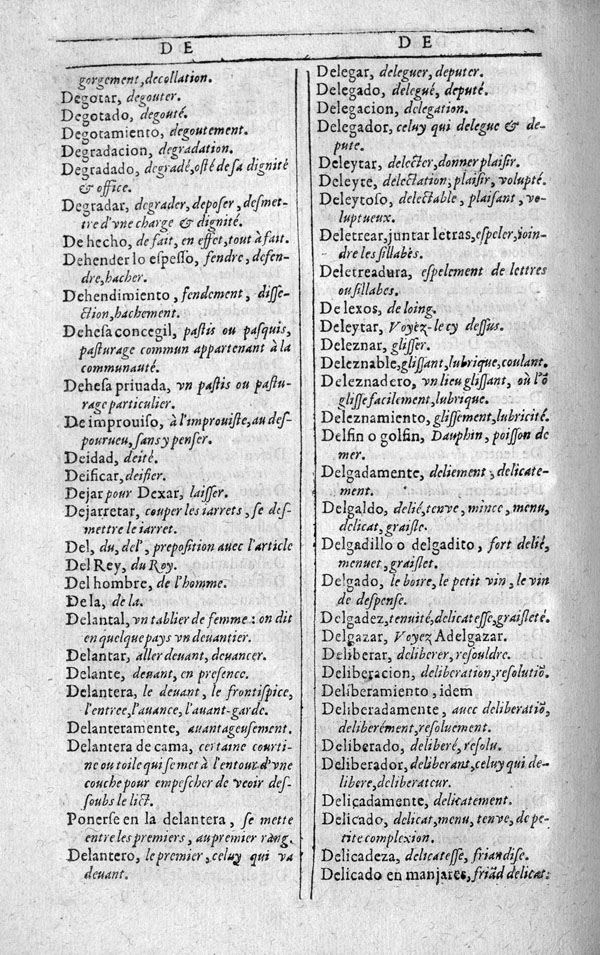 DE
gorgement, decollation.
Degotar, degouter.
Degotado, degouté.
Degotamiento, degoutement.
Degradacion, degradation.
Degradado, degradé, osté de sa dignité
& office.
Degradar, degrader, deposer, desmet-
tre d'vne charge & dignité.
De hecho, de fait, en effet, tout à fait.
Dehender lo espesso, fendre, defen-
dre, hacher.
Dehendimiento, fendement, disse-
ction, hachement.
Dehesa concegil, pastis ou pasquis,
pasturage commun appartenant à la
communauté.
Dehesa priuada, vn pastis ou pastu-
rage particulier.
De improuiso, à l'improuiste, au des-
pourueu, sans y penser.
Deidad, deité.
Deificar, deifier.
Dejar pour Dexar, laisser.
Dejarretar, couper les iarrets, se des-
mettre le iarret.
Del, du, del', preposition auec l'article
Del Rey, du Roy.
Del hombre, de l'homme.
De la, de la.
Delantal, vn tablier de femme: on dit
en quelque pays vn deuantier.
Delantar, aller deuant, deuancer.
Delante, deuant, en presence.
Delantera, le deuant, le frontispice,
l'entree, l'auance, l'auant-garde.
Delanteramente, auantageusement.
Delantera de cama, certaine courti-
ne ou toile qui se met à l'entour d'vne
couche pour empescher de veoir des-
soubs le lict.
Ponerse en la delantera, se mette
entre les premiers, au premier rang.
Delantero, le premier, celuy qui va
deuant.
DE
Delegar, deleguer, deputer.
Delegado, delegué, deputé.
Delegacion, delegation.
Delegador, celuy qui delegue & de-
pute.
Deleytar, delecter, donner plaisir.
Deleyte, delectation, plaisir, volupté.
Deleytoso, delectable, plaisant, vo-
luptueux.
Deletrear, juntar letras, espeler, join-
dre les sillabes.
Deletreadura, espelement de lettres
ou sillabes.
De lexos, de loing.
Deleytar, Voyez-le cy dessus.
Deleznar, glisser.
Deleznable, glissant, lubrique, coulant.
Deleznadero, vn lieu glissant, où l'ō
glisse facilement, lubrique.
Deleznamiento, glissement, lubricité.
Delfin o golfin, Dauphin, poisson de
mer.
Delgadamente, deliement, delicate-
ment.
Delgaldo, delié, tenve, mince, menu,
delicat, graisle.
Delgadillo o delgadito, fort delié,
menuet, graislet.
Delgado, le boire, le petit vin, le vin
de despense.
Delgadez, tenuité, delicatesse, graisleté.
Delgazar, Voyez Adelgazar.
Deliberar, deliberer, resouldre.
Deliberacion, deliberation, resolutiō.
Deliberamiento, idem
Deliberadamente, auec deliberatiō,
deliberément, resoluement.
Deliberado, deliberé, resolu.
Deliberador, deliberant, celuy qui de-
libere, deliberateur.
Delicadamente, delicatement.
Delicado, delicat, menu, tenve, de pe-
tite complexion.
Delicadeza, delicatesse, friandise.
Delicado en manjares, friād delicat.